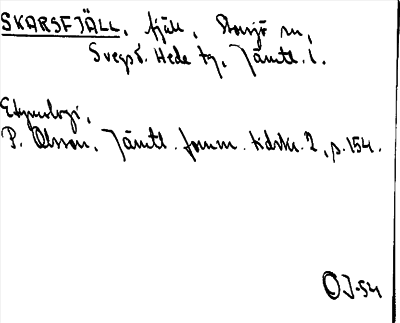 SKARSFJÄLL, fjäll, Storsjö sn,
Svegs o. Hede tg, Jämtl. l.
Etymologi.
P. Olsson, Jämtl. fornm. tidskr. 2, p. 154.
OJ-54